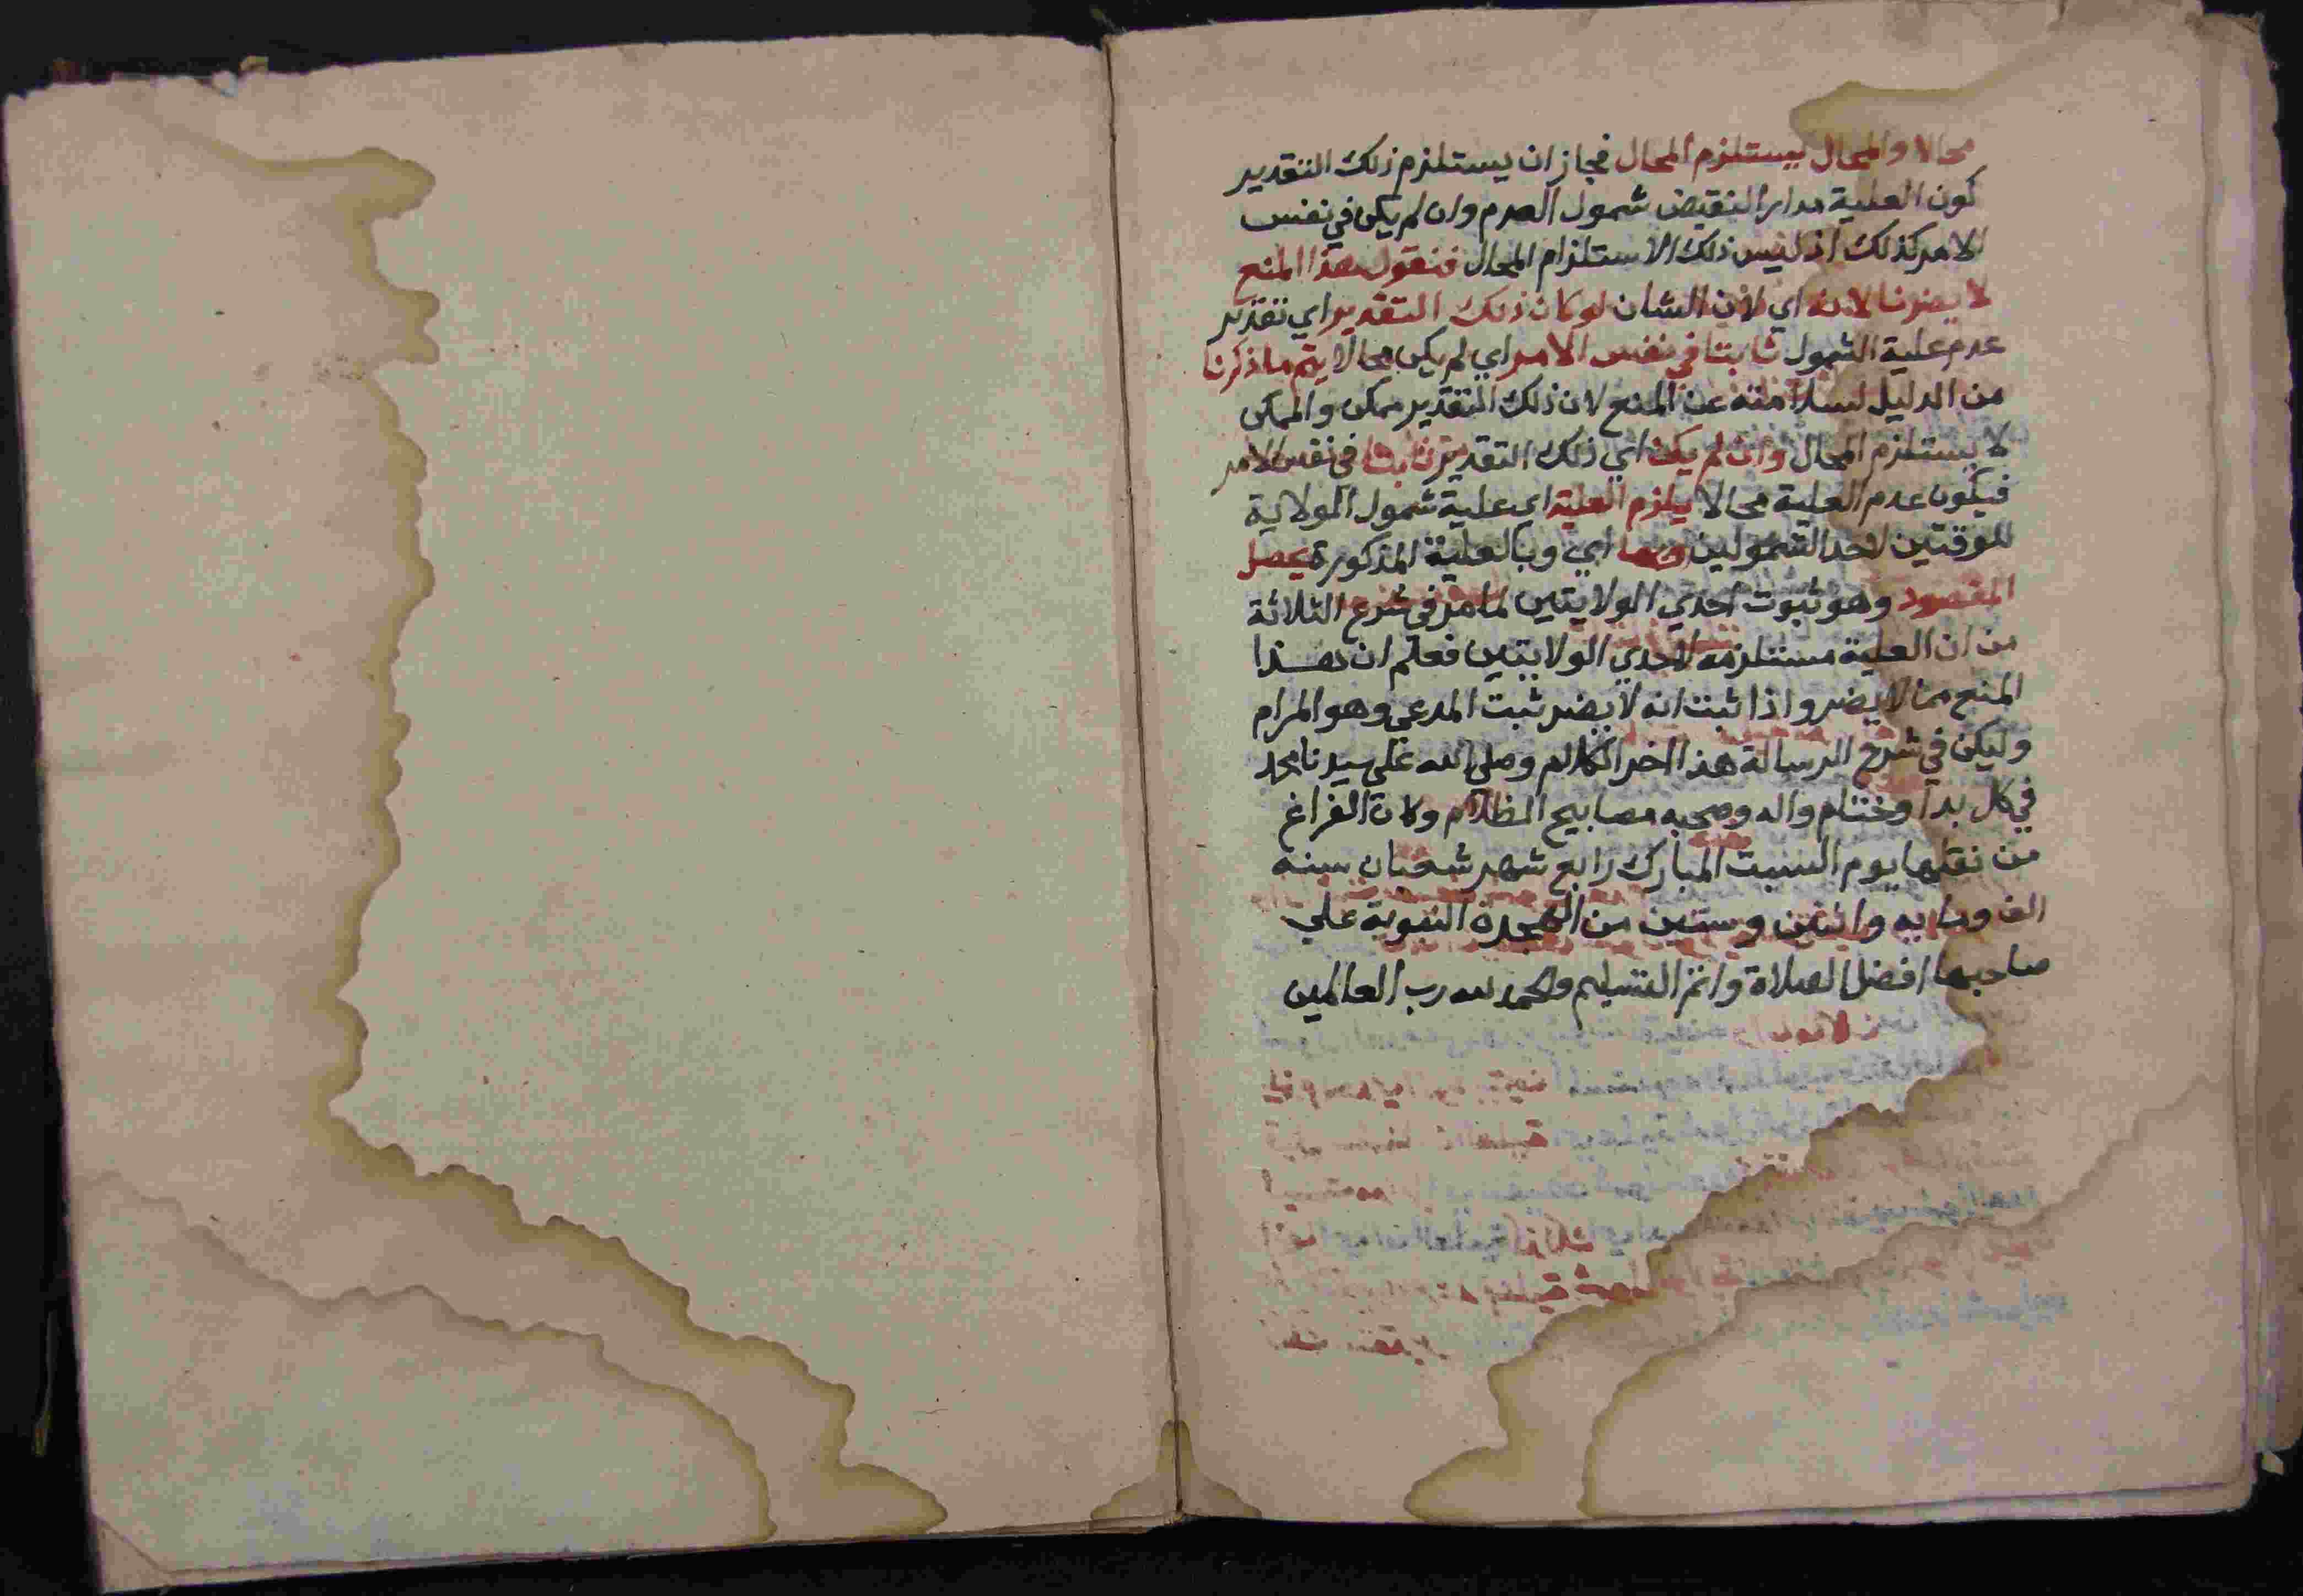 محالا والمحال يستلزم المحال فجاز ان يستلزم ذلك التقدير
كون العلية مدار النقيض شمول العدم وان لم يكن في نفس
الامر كذلك اذ ليس ذلك الا ستلزام المحال فنقول هذا المنع
لا يضرنا لانه اي لان الشان لو كان ذلك التقدير اي تقدير
عدم علية الشمول ثابتا في نفس الامر اي لم يكن محالا يتم ما ذكرنا
من الدليل لسلامته عن المنع لان ذلك التقدير ممكن والممكن
لا يستلزم المحال وان لم يكن اي ذلك التقدير ثابتا في نفس الامر
فيكون عدم العلية محالا يلزم العلية اي علية شمول المولاية
للوقتين لاحد الشمولين وبها اي وبالعلية المذكورة يحصل
المقصود وهو ثبوت احدي الولايتين لما مر في شرع الثلاثة
من ان العلية مستلزمه لاحدي الولايتين فعلم ان هذا
المنع مما لا يضر واذا ثبت انه لا يضر ثبت المدعي وهو المرام
وليكن في شرح الرسالة هذا اخر الكلام وصلي الله علي سيدنا محمد
في كل بدا وختام واله وصحبه مصابيح الظلام وكان الفراغ
من نقلها يوم السبت المبارك رابع شهر شعبان سنه
الف ومايه واثنين وستين من الهجرة النبوية علي
صاحبها افضل الصلاة واتم التسليم والحمد لله رب العالمين